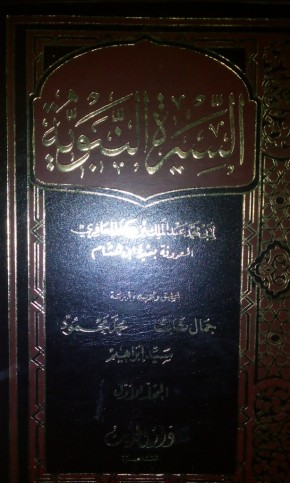 السيرة النبوية
لأبي محمد عبد الملك بن هشام المعافري
المعروفة بسيرة ابن هشام
تحقيق وتخريج وفهرسة
جمال ثابت محمد محمود
سيد إبراهيم
الجزء الأول
دار الحديث
القاهرة